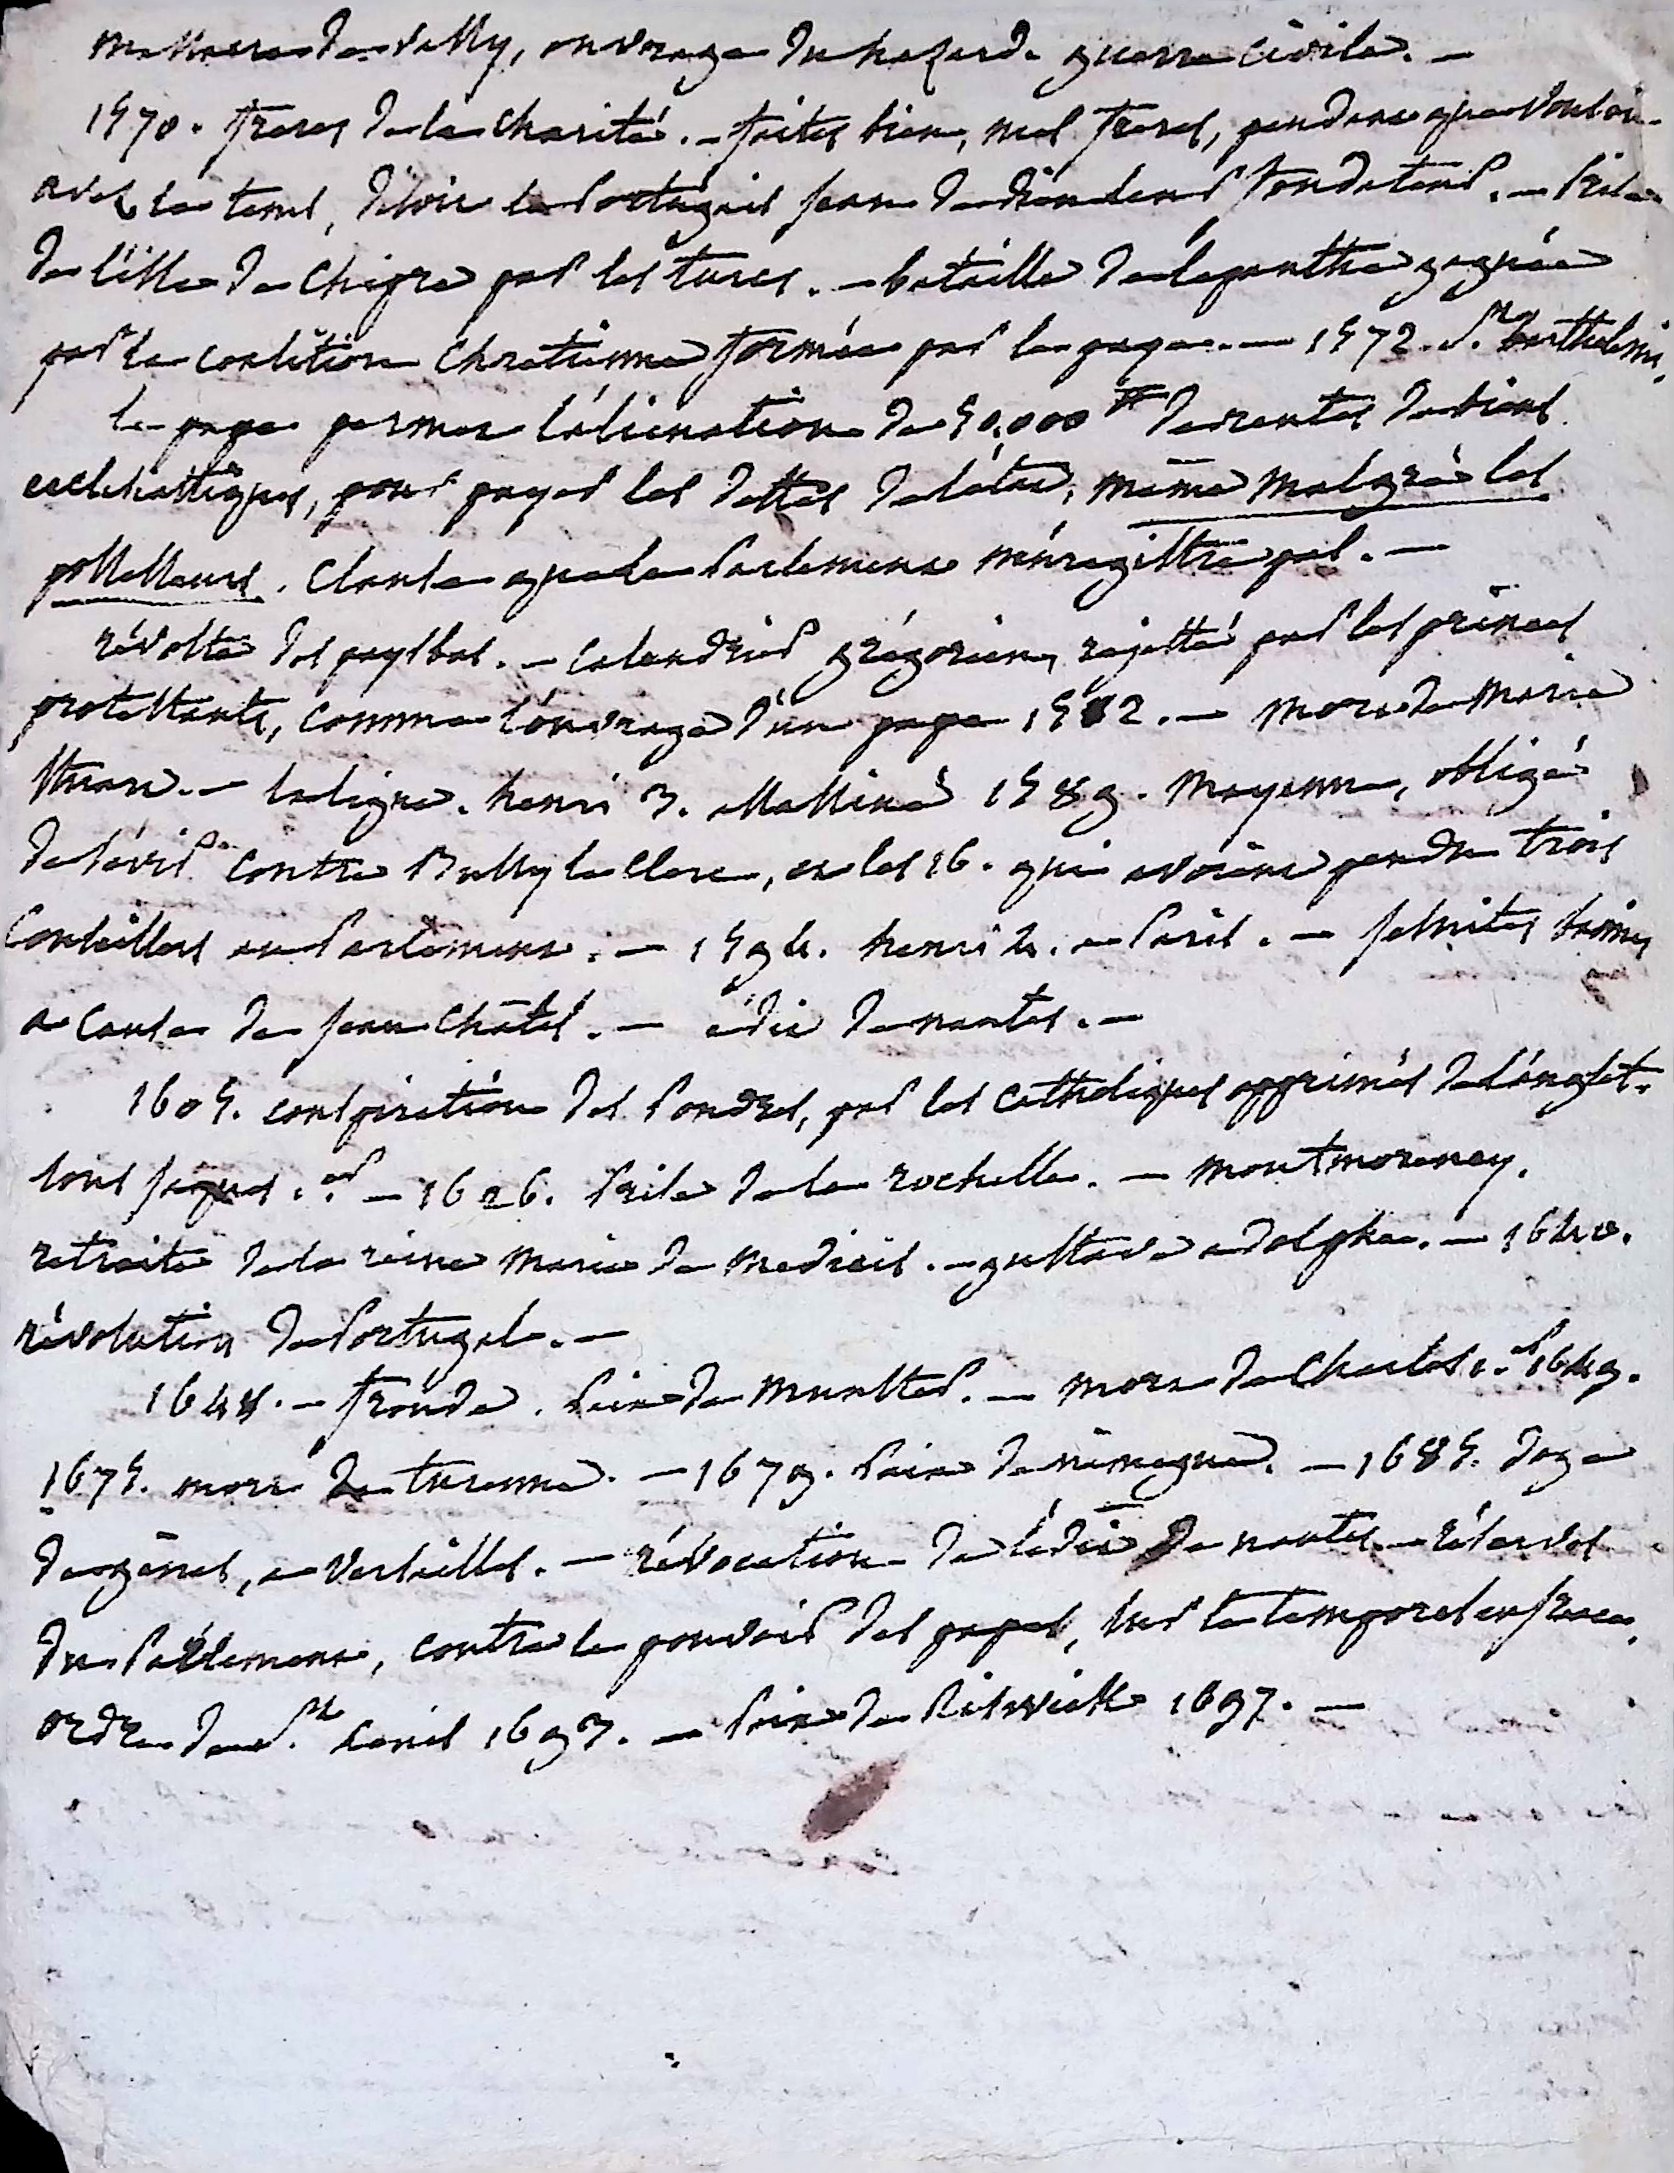 massacre de vassy, ouvrage du hazard. guerre civile. —
1570. freres de la charité. — faites bien, mes freres, pendant que vous en
avez le tems, disoit le Portugais jean de dieu leur fondateur. — Prise
de l'isle de Chipre par les turcs. — bataille de lépanthe gagnée
par la coalition chrétienne formée par le pape. — 1572. St. barthelemi.
le pape permet l'aliénation de 50,000 ₶ de rentes de biens
ecclésiastiques, pour payer les dettes de l'état, même malgré les
possesseurs. Clause que le Parlement n'enregistre pas. —
révolte des pays bas. — calendrier grégorien, rejetté par les princes
protestants, comme l'ouvrage d'un pape 1582. — mort de marie
stuart. — la ligue. henri 3. assassiné 1589. Mayenne, obligé
de sévir contre Bussy le Clerc, et les 16. qui avoient pendu trois
Conseillers au Parlement. — 1594. henri 4. a Paris. — jesuites bannis
a cause de jean Chatel. — édit de nantes. —
1605. conspiration des Poudres, par les catholiques opprimés de l'anglet.
sous jaques 1.er — 1626. Prise de la rochelle. — montmorency.
retraite de la reine marie de medicis. — gustave adolphe. — 1640.
révolution de Portugal. —
1648. — fronde. Paix de munster. — mort de Charles 1.er 1649.
1675. mort de turenne. — 1679. Paix de nimegue. — 1685. doge
de gênes, a versailles. — révocation de l'édit de nantes. — réserves
du Parlement, contre le pouvoir des papes, sur le temporel en france.
ordre de St. Louis 1693. — Paix de Riswick 1697. —